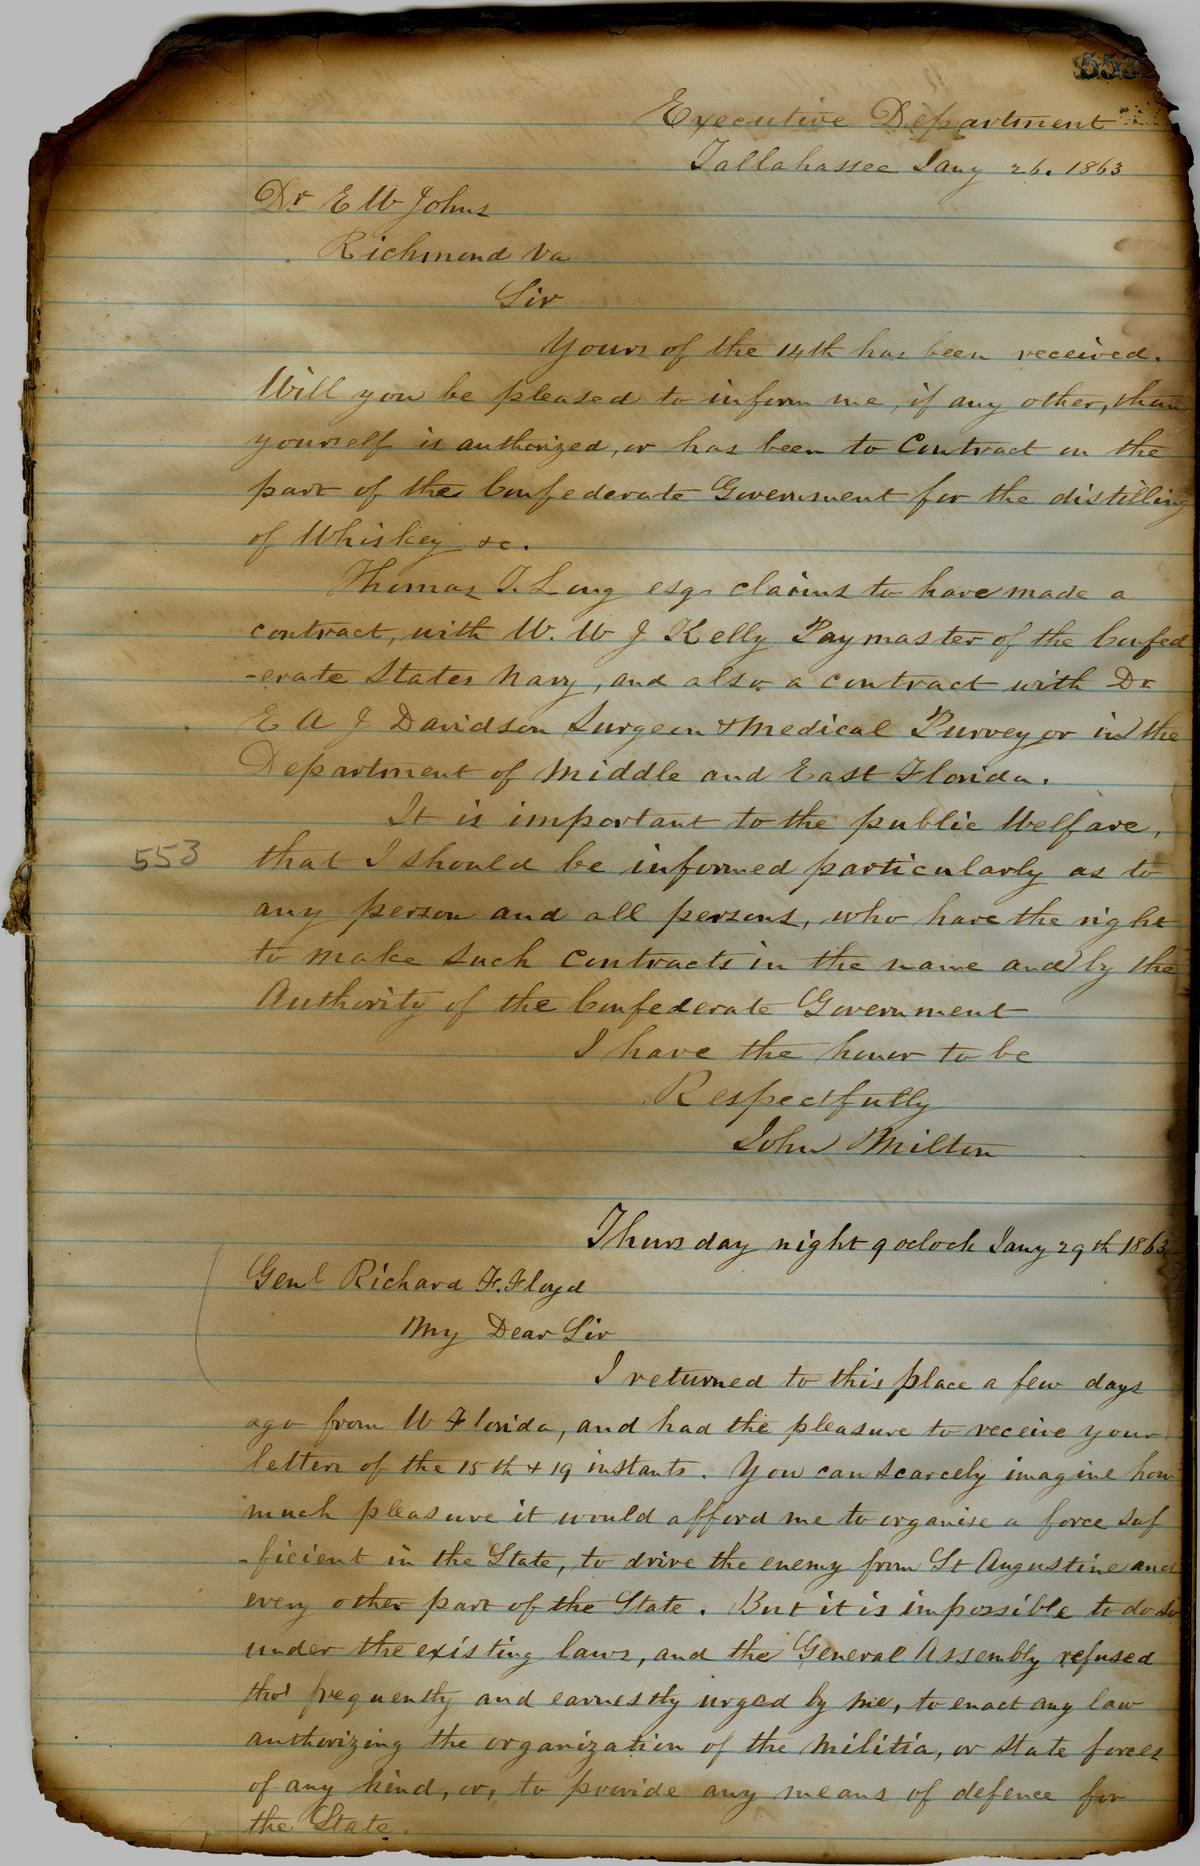 553
Executive Department
Tallahassee Jany 26. 1863
Dr E W Johns
Richmond Va
Sir
Yours of the 14th has been received.
Will you be pleased to inform me, if any other, than
yourself is authorized, or has been to Contract on the
part of the Confederate Government for the distilling
of Whiskey &c.
Thomas T. Long esqr claims to have made a
contract, with W. W J Kelly Paymaster of the Confed
-erate States Navy, and also a contract with Dr
E A J Davidson Surgeon & Medical Purveyor in the
Department of Middle and East Florida.
It is important to the public Welfare,
553
that I should be informed particularly as to
any person and all persons, who have the right
to make such contracts in the name and by the
Authority of the Confederate Government
I have the honor to be
Respectfully
John Milton
Thursday night 9 oclock Jany 29th 1863
Genl Richard F. Floyd
My Dear Sir
I returned to this place a few days
ago from W Florida, and had the pleasure to receive your
letters of the 15th & 19 instants. You can scarcely imagine how
much pleasure it would afford me to organise a force suf
-ficient in the State, to drive the enemy from St Augustine and
every other part of the State. But it is impossible to do so
under the existing laws, and the General Assembly refused
tho' frequently and earnestly urged by me, to enact any law
authorizing the organization of the Militia, or State forces
of any kind, or, to provide any means of defence for
the State.